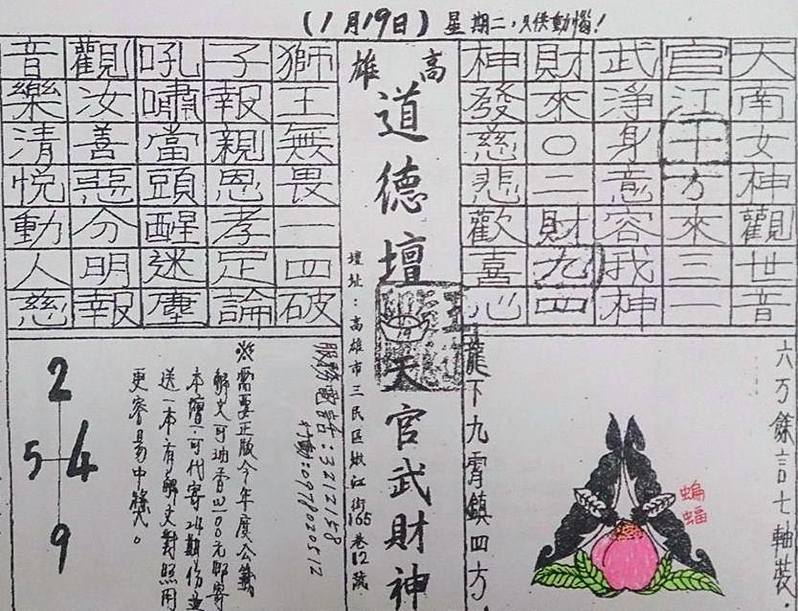 (1月19日)星期二,只供動惱!
天南女神觀世音
官江十方來三一
武淨身意容我神
財來○二財九四
神發慈悲歡喜心
高雄
道德壇
天官武財神
壇址:高雄市三民區嫩江街165巷12號
獅王無畏一四破
子報親恩孝定論
吼嘯當頭醒迷塵
觀汝善惡分明報
音樂清悦動人慈
六万餘言七軸裝,
龍下九霄鎮四方,
蝙蝠
服務電話:3212158
行動:0978020512
※需要正版今年度公籤
解文可油香 元郵寄
本壇,可代寄 期份並
送一本有解文對照用
更容易中獎。
2
5 4
9